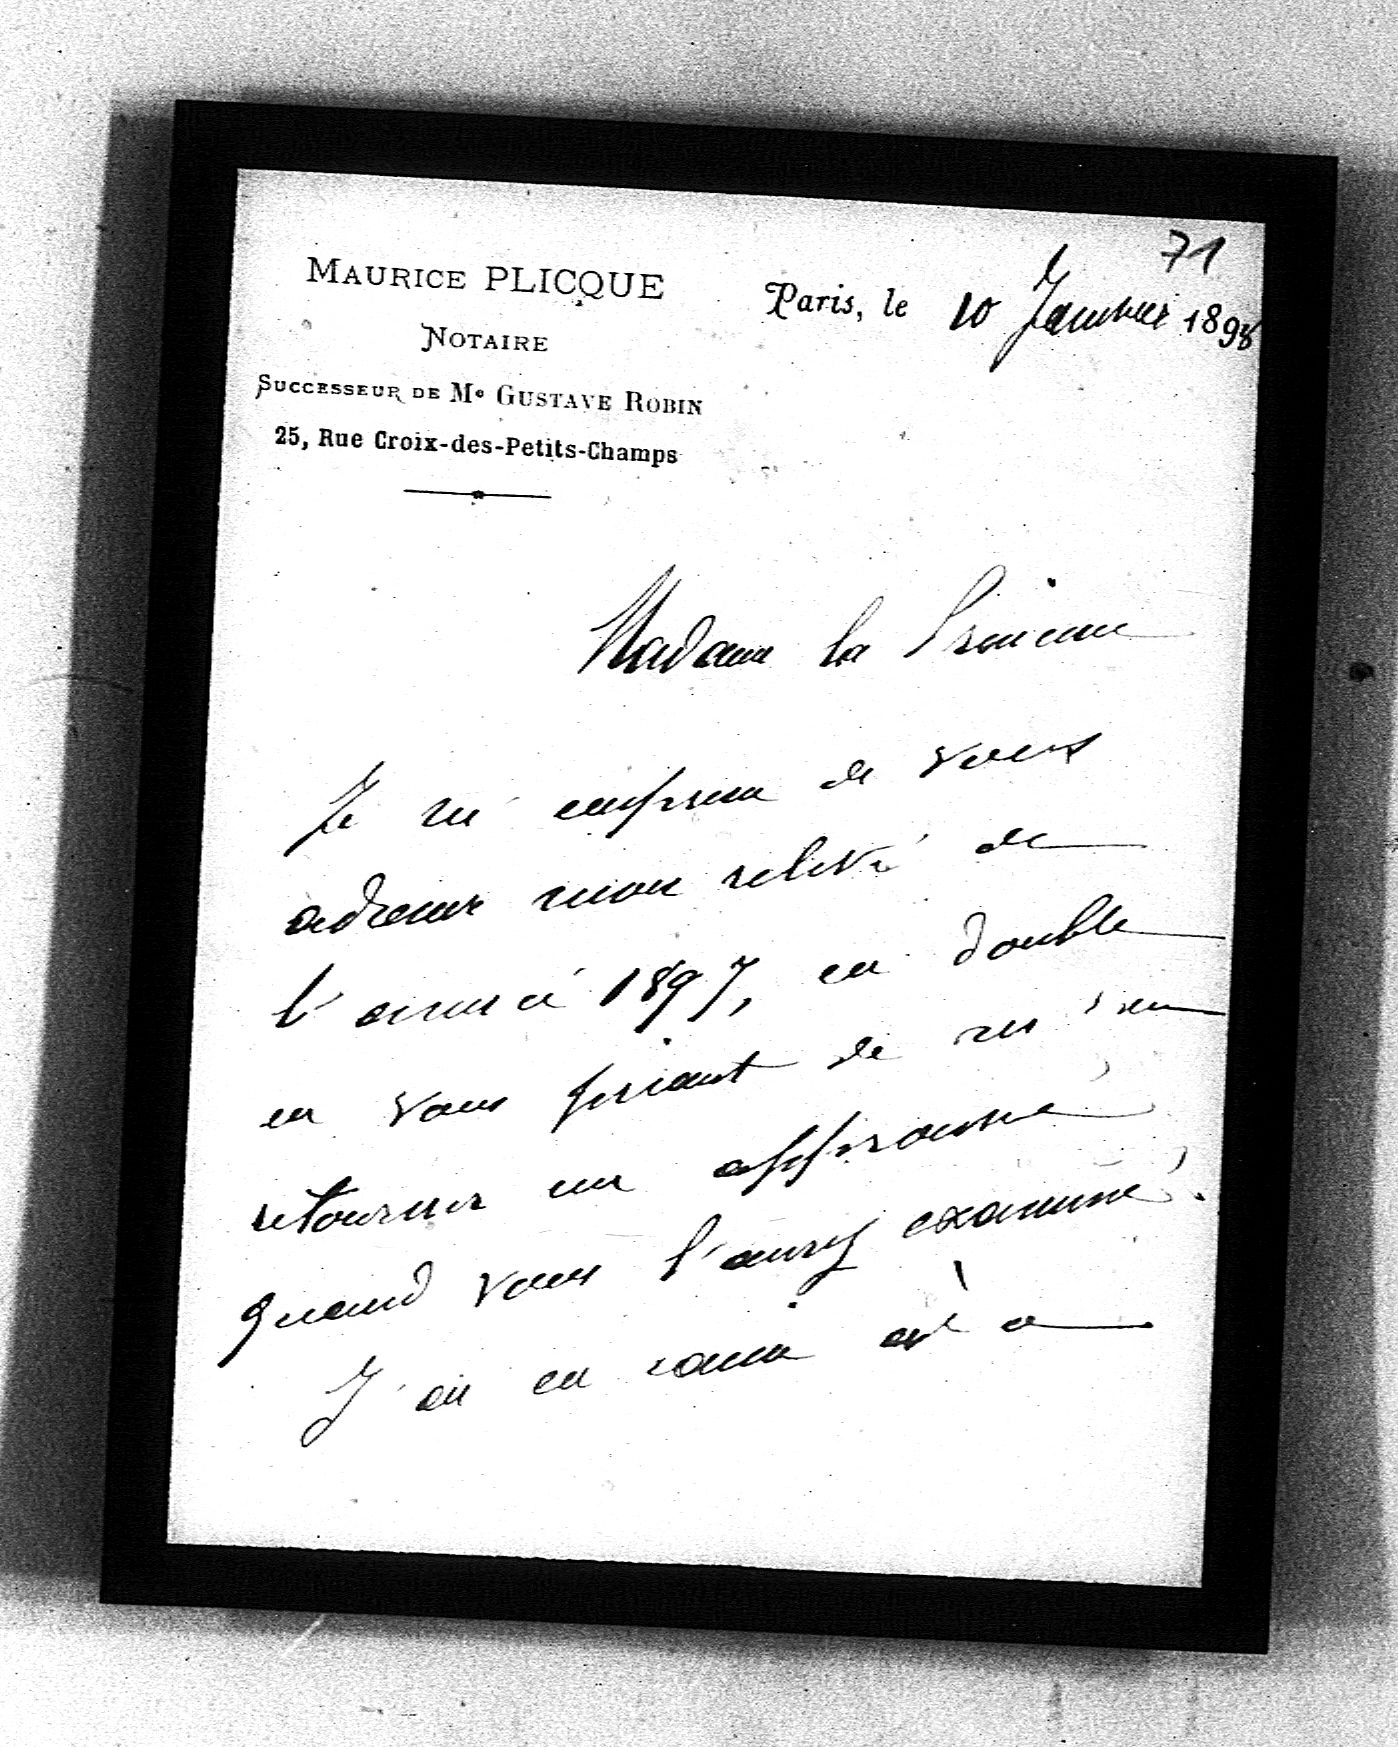 71
MAURICE PLICQUE
NOTAIRE
SUCCESSEUR DE Me GUSTAVE ROBIN
25, Rue Croix-des-Petits-Champs
Paris, le 10 Janvier 1898
Madame la Princesse
Je m'empresse de vous
adresser mon relevé de
l'année 1897, en double
en vous priant de m'en
retourner un approuvé
quand vous l'aurez examiné.
J'ai en caisse et à